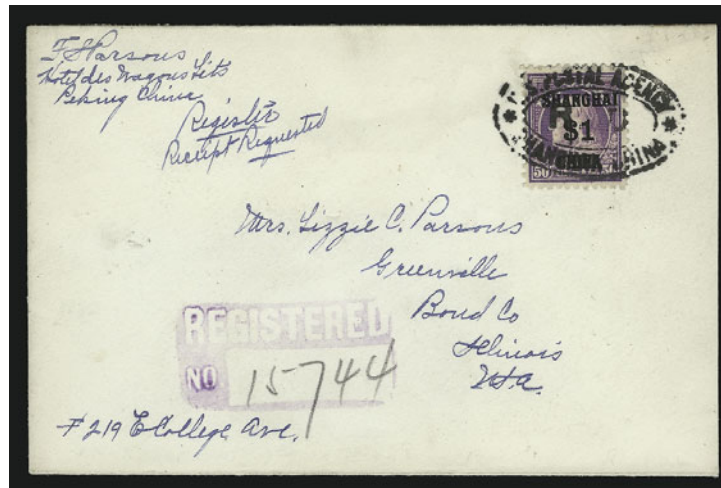 F S Parsons
Hotel des Wagons Lits
Peking China
Register
Receipt Requested
U.S. POSTAL AGENCY
SHANGHAI
$1
CHINA
SHANGHAI, CHINA
50
Mrs. Lizzie C. Parsons
Greenville
Bond Co
Illinois
USA.
REGISTERED
NO 15744
# 219 E College Ave.